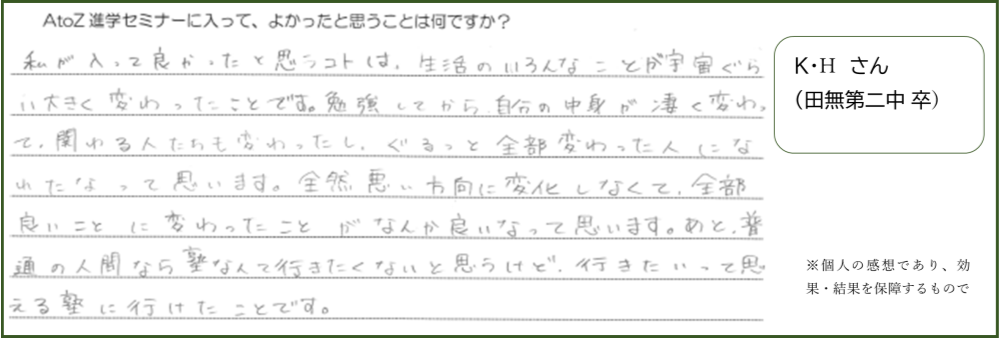 AtoZ 進学セミナーに入って、よかったと思うことは何ですか？
私が入って良かったと思うコトは、生活のいろんなことが宇宙ぐら
い大きく変わったことです。勉強してから自分の中身が凄く変わっ
て、関わる人たちも変わったし、ぐるっと全部変わった人にな
れたなって思います。全然悪い方向に変化しなくて、全部
良いことに変わったことがなんか良いなって思います。あと、普
通の人間なら塾なんて行きたくないと思うけど、行きたいって思
える塾に行けたことです。
K・H さん
（田無第二中 卒）
※個人の感想であり、効
果・結果を保障するもので